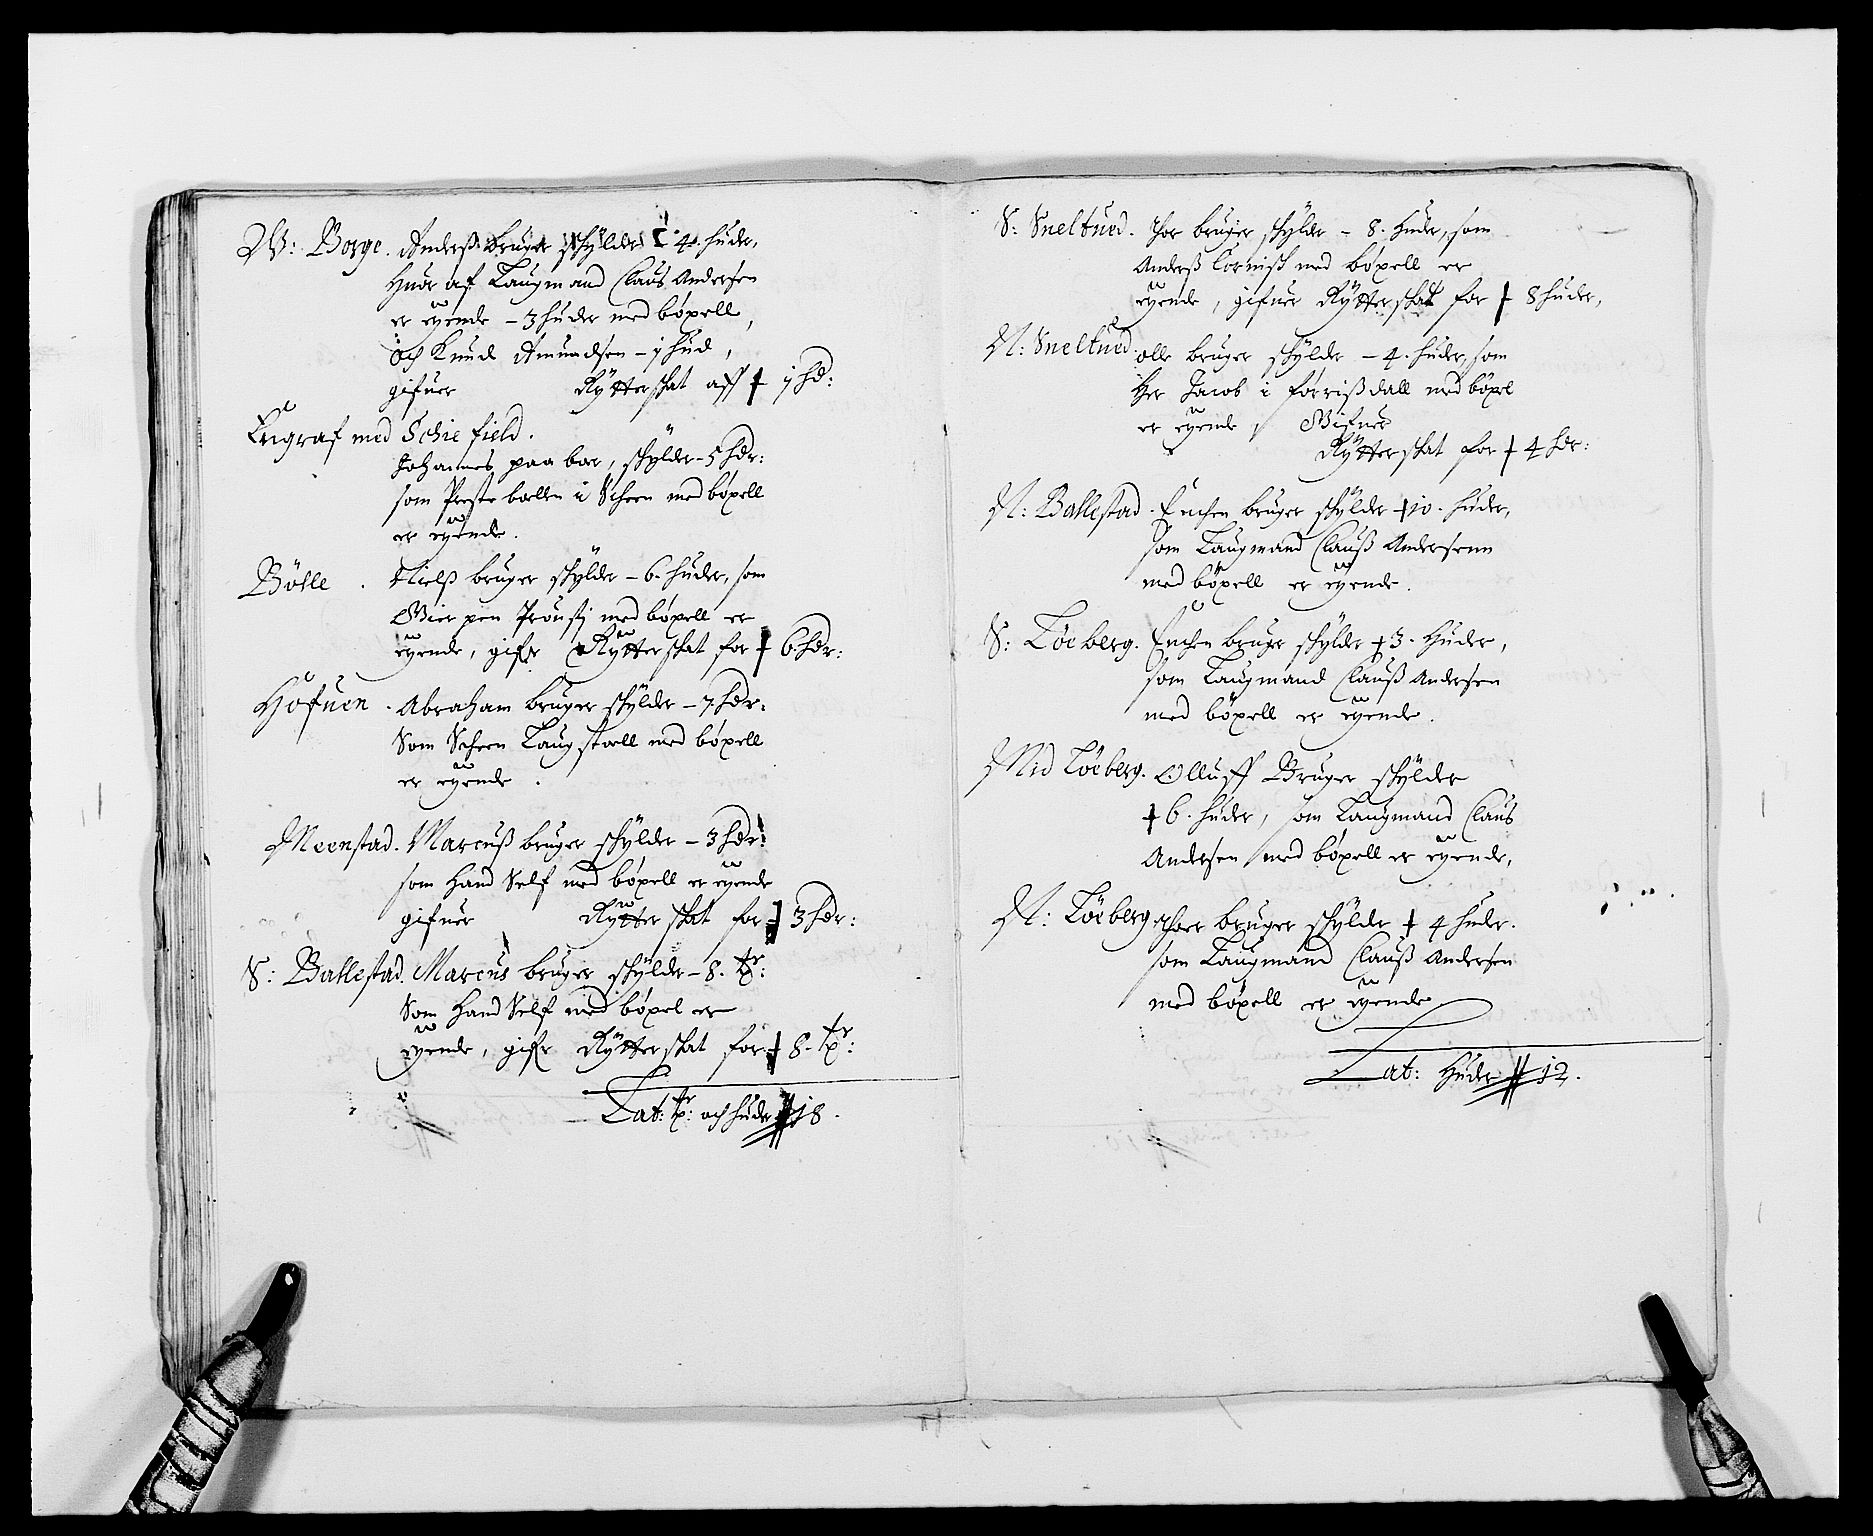 W: Borge. Anders bruger skylder 4. huder,
Huor af Laugmand Claus Andersen
er eyende – 3 huder med bøxell,
och Knud Amundsen – 1 hud,
gifuer Rytterskat aff 1 hd:
Engraf med Schiefield.
Johannes paa boer, skylder – 5 hdr:
som Preste bollen i Scheen med bøxell
er eyende.
Bölle. Nielß bruger skylder – 6. huder, som
Gierpen Prousti med bøxell er
eyende, gifr Rytterskat for 6 hdr:
Höfuen. Abraham bruger skylder – 7 hdr:
Som Scheen Laugstoell med bøxell
er eyende.
Meenstad. Marcuß bruger skylder – 3 hdr:
som Hand Self med bøxell er eyende
gifuer Rytterskat for 3 hdr:
S: Ballestad. Marcus bruger skylder – 8. tr:
Som Hand Self med bøxel er
eyende, gifr Rytterskat for 8. tr:
Lat: tr: och huder 18.
S: Sneltued. Thor bruger skylder – 8. Huder, som
Anderß Cornisk med bøxell er
eyende, gifuer Rytterskat for 8 huder,
N: Sneltued. olle bruger skylder – 4. huder, som
Her Jacob i forrißdall med bøxel
er eyende, Gifuer
Rytterskat for 4 hdr:
N: Ballestad. Enchen bruger skylder 10. huder,
som Laugmand Clauß Andersenn
med bøxell er eyende.
S: Löeberg. Enchen bruger skylder 3. Huder,
som Laugmand Clauß Andersen
med bøxell er eyende.
Mid Löeberg. Olluff Bruger skylder
6. huder, som Laugmand Claus
Andersen med bøxell er eyende,
N: Löeberg Thoer bruger skylder 4 huder.
som Laugmand Clauß Andersen
med bøxell er eyende
Lat: Huder 12.